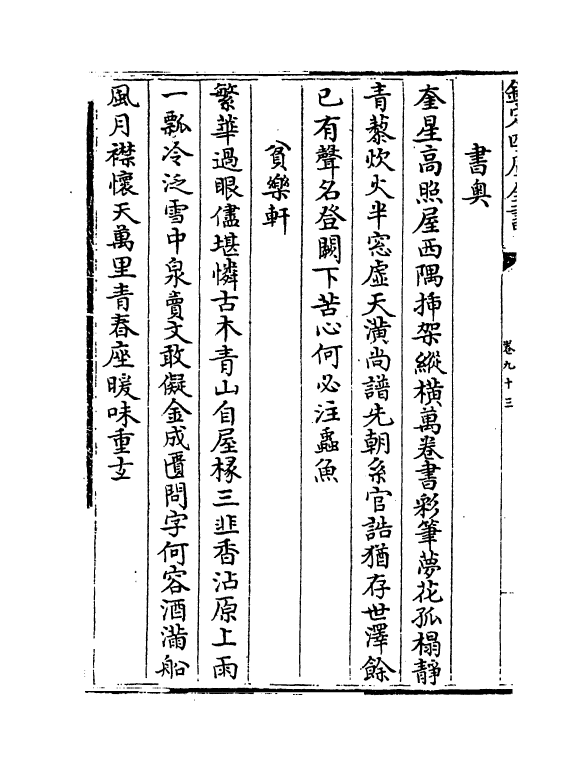 欽定四庫全書
卷九十三
書奥
奎星高照屋西隅揷架縱橫萬卷書彩筆夢花孤榻靜
青藜炊火半窓虛天潢尚譜先朝系官誥猶存世澤餘
已有聲名登闕下苦心何必注蟲魚
貧樂軒
繁華過眼儘堪憐古木青山自屋椽三韭香沾原上雨
一瓢冷泛雪中泉賣文敢儗金成匱問字何容酒滿船
風月襟懷天萬里青春座暖味重玄